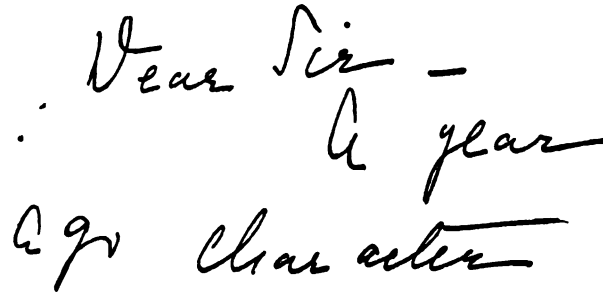 Dear Sir –
A year
ago character